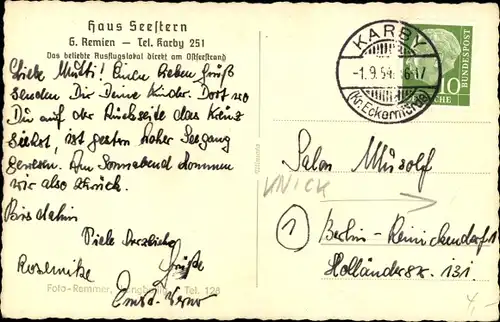 Haus Seestern
G. Remien — Tel. Karby 251
Das beliebte Ausflugslokal direkt am Ostseestrand
Liebe Mutti! Einen lieben Gruß
senden Dir Deine Kinder. Dort wo
Du auf der Rückseite das Kreuz
siehst, ist gestern hoher Seegang
gewesen. Am Sonnabend kommen
wir also zurück.
Bis dahin
Viele herzliche
Grüße
Rosemike
Foto-Remmer, Tel. 128
KARBY
-1.9.54.16-17
(Kr. Eckernförde)
10
DEUTSCHE BUNDESPOST
Salon Musolf
KNICK
1 Berlin-Reinickendorf 1
Holländerstr. 131.
4,-